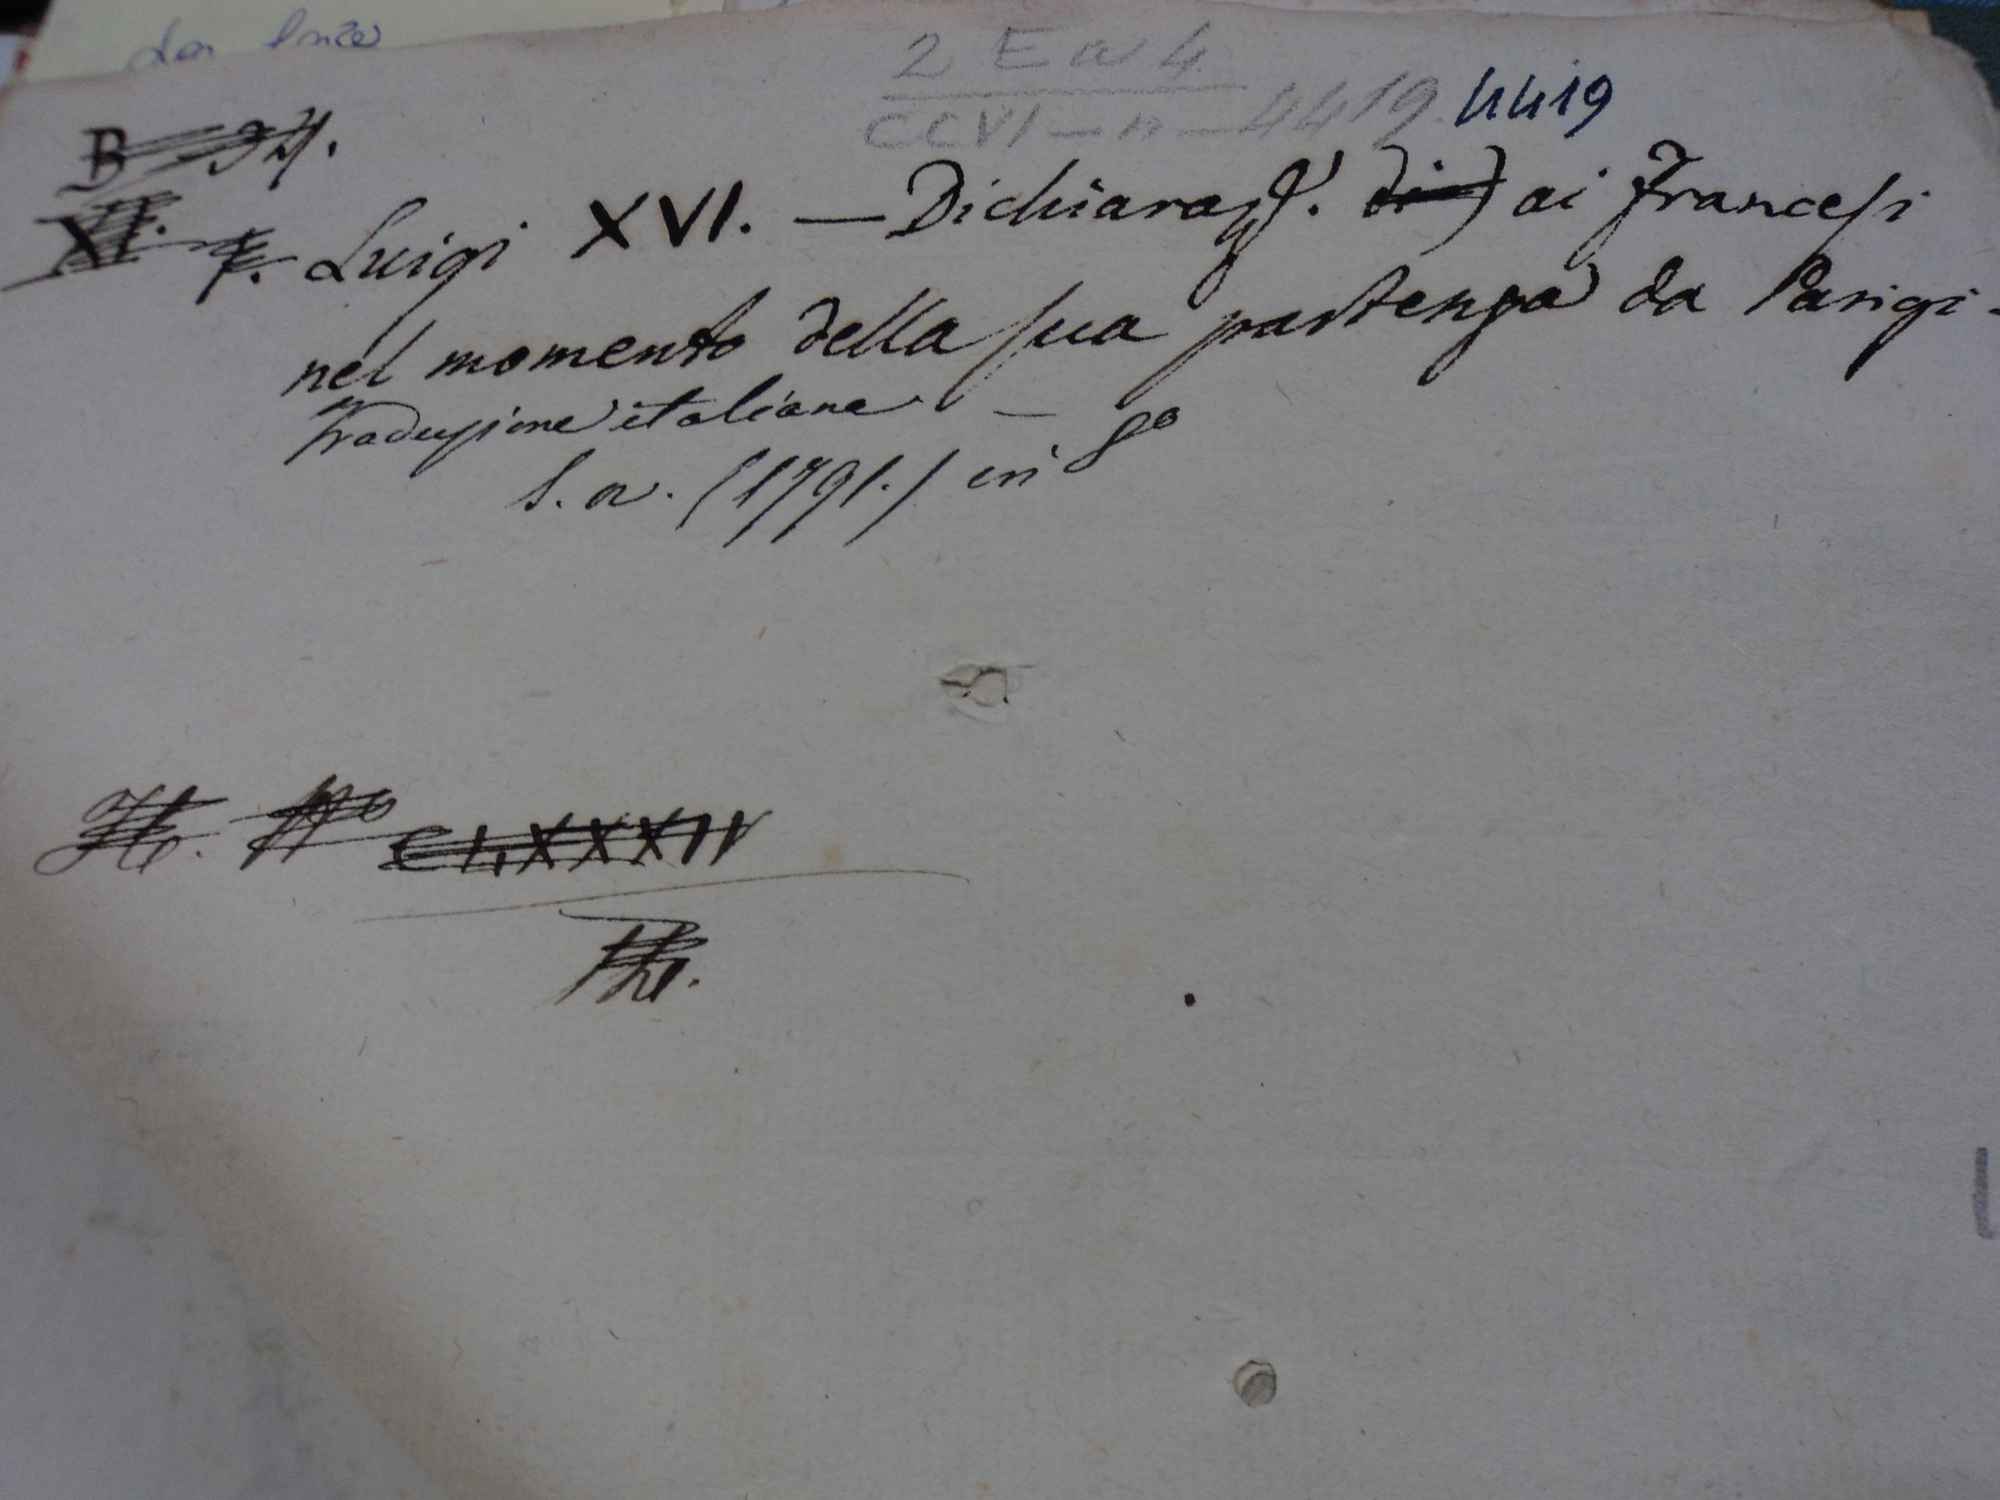 2 E a 4
CCVI - n - 4419 4419
B 34.
XI. 7. Luigi XVI. — Dichiaraz.e di ai Francesi
nel momento della sua partenza da Parigi.
Traduzione italiana —
s. a. (1791.) in 8º
H. Nº CLXXXIV